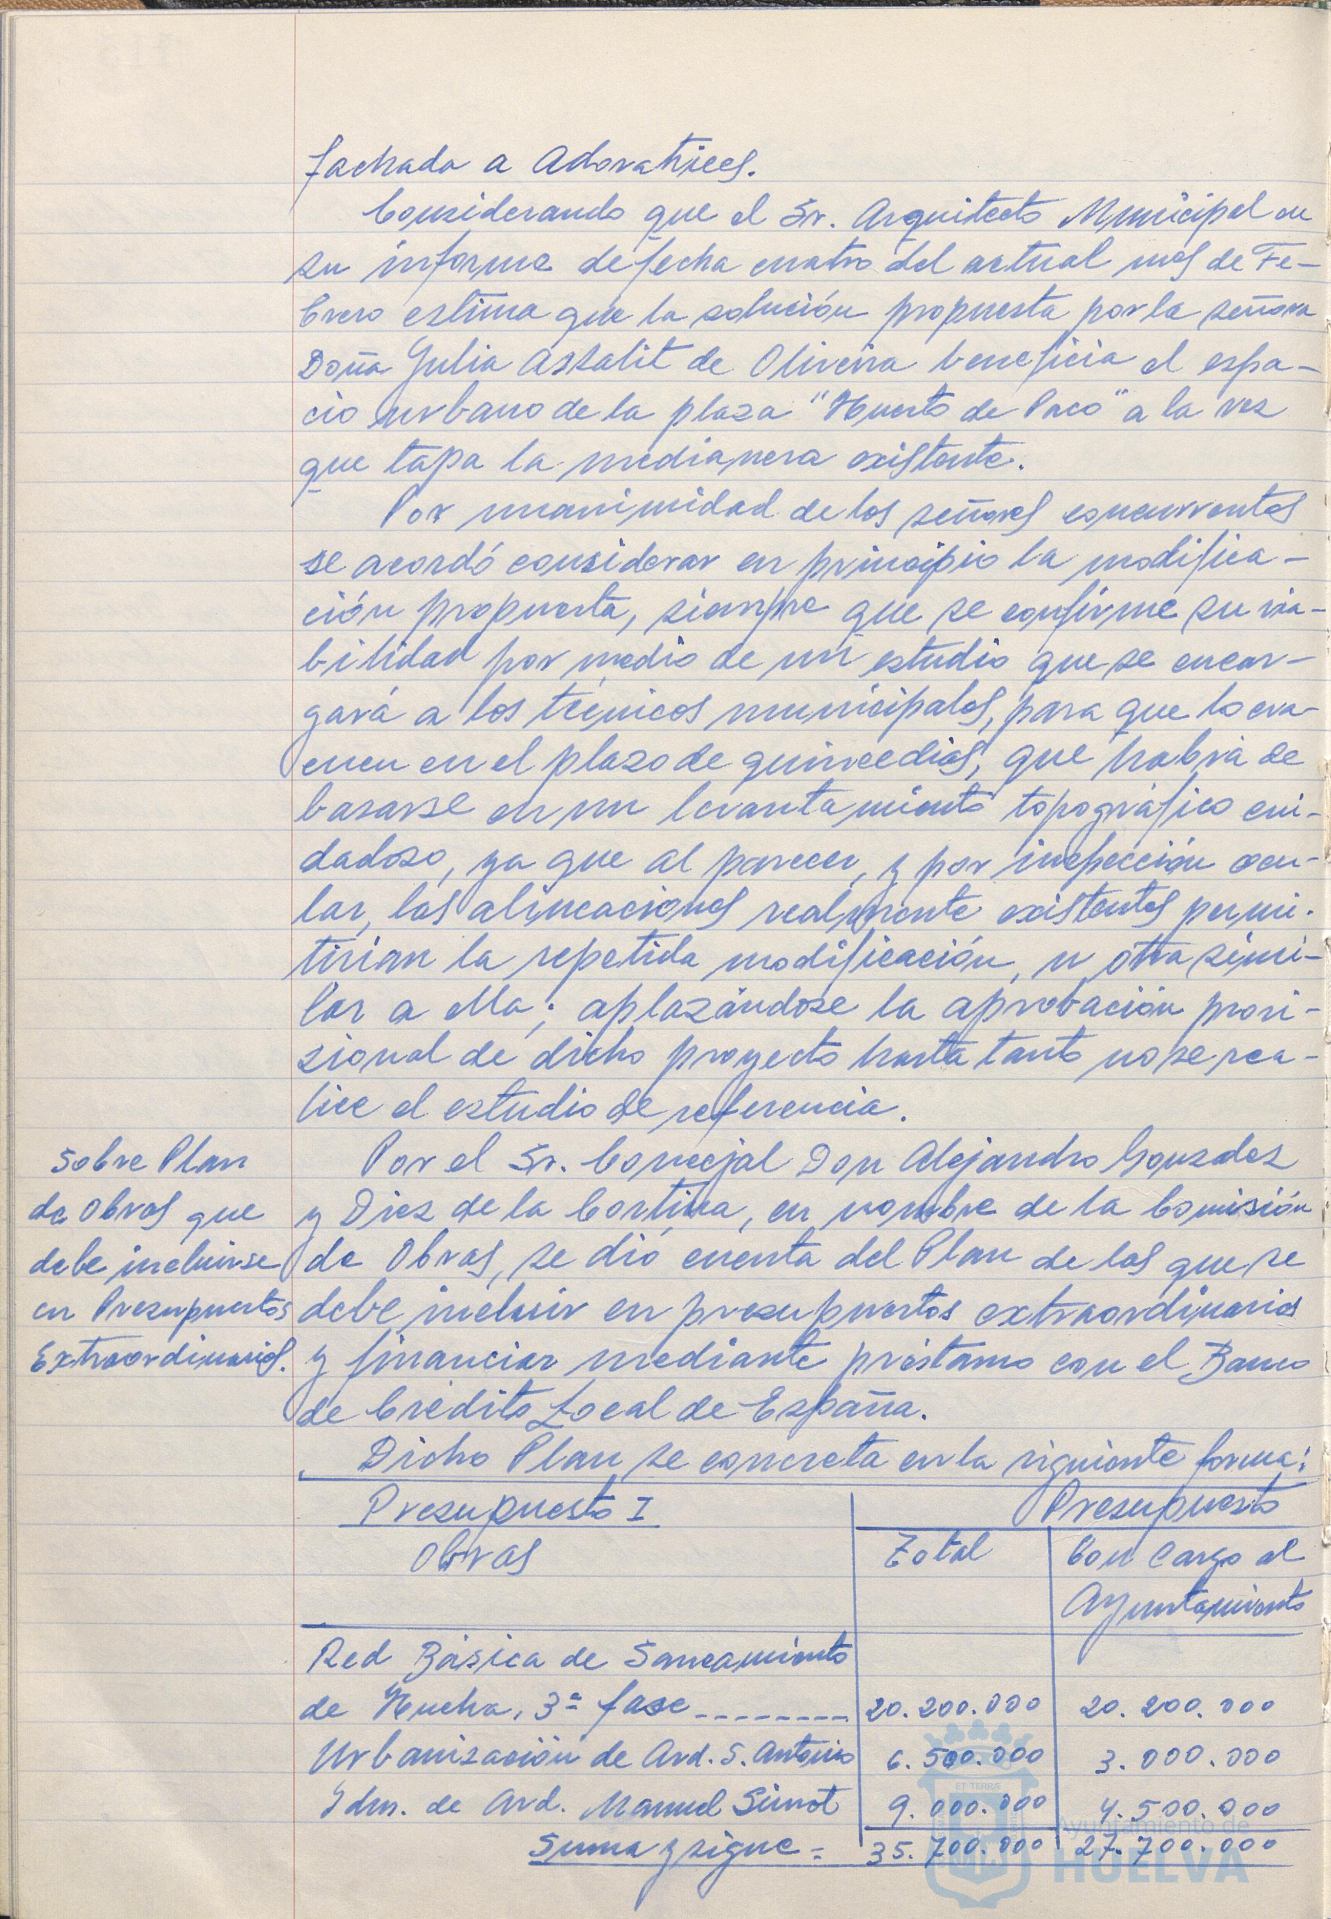 fachada a Adoratrices.
Considerando que el Sr. Arquitecto Municipal en
su informe de fecha cuatro del actual mes de Fe-
brero estima que la solución propuesta por la señora
Doña Julia Astalit de Oliveira beneficia el espa-
cio urbano de la plaza "Huerto de Paco" a la vez
que tapa la medianera existente.
Por unanimidad de los señores concurrentes
se acordó considerar en principio la modifica-
ción propuesta, siempre que se confirme su via-
bilidad por medio de un estudio que se encar-
gará a los técnicos municipales, para que lo eva-
cuen en el plazo de quince dias, que habrá de
basarse en un levantamiento topográfico cui-
dadoso, ya que al parecer, y por inspección ocu-
lar, las alineaciones realmente existentes permi-
tirian la repetida modificación, u otra simi-
lar a ella; aplazándose la aprobación provi-
sional de dicho proyecto hasta tanto no se rea-
lice el estudio de referencia.
Sobre Plan
de Obras que
debe incluirse
en Presupuestos
Extraordinarios.
Por el Sr. Concejal Don Alejandro Gonzalez
y Diez de la Cortina, en nombre de la Comisión
de Obras, se dió cuenta del Plan de las que se
debe incluir en presupuestos extraordinarios
y financiar mediante préstamo con el Banco
de Crédito Local de España.
Dicho Plan se concreta en la siguiente forma:
Presupuesto I Presupuesto
Obras Total Con cargo al
Ayuntamiento
Red Básica de Saneamiento
de Huelva, 3ª fase -------- 20.200.000 20.200.000
Urbanización de Avd. S. Antonio 6.500.000 3.000.000
Idm. de Avd. Manuel Siurot 9.000.000 4.500.000
Suma y sigue = 35.700.000 27.700.000
Ayuntamiento de
HUELVA